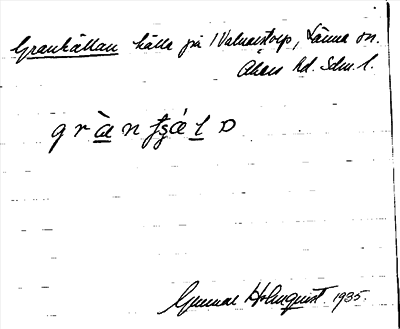 Grankällan källa på 1 Valnaristorp, Länna sn.
Åkers hd. Sdm. l.
g r à n ʈʂ ǽ l ɒ
Gunnar Holmquist 1935.